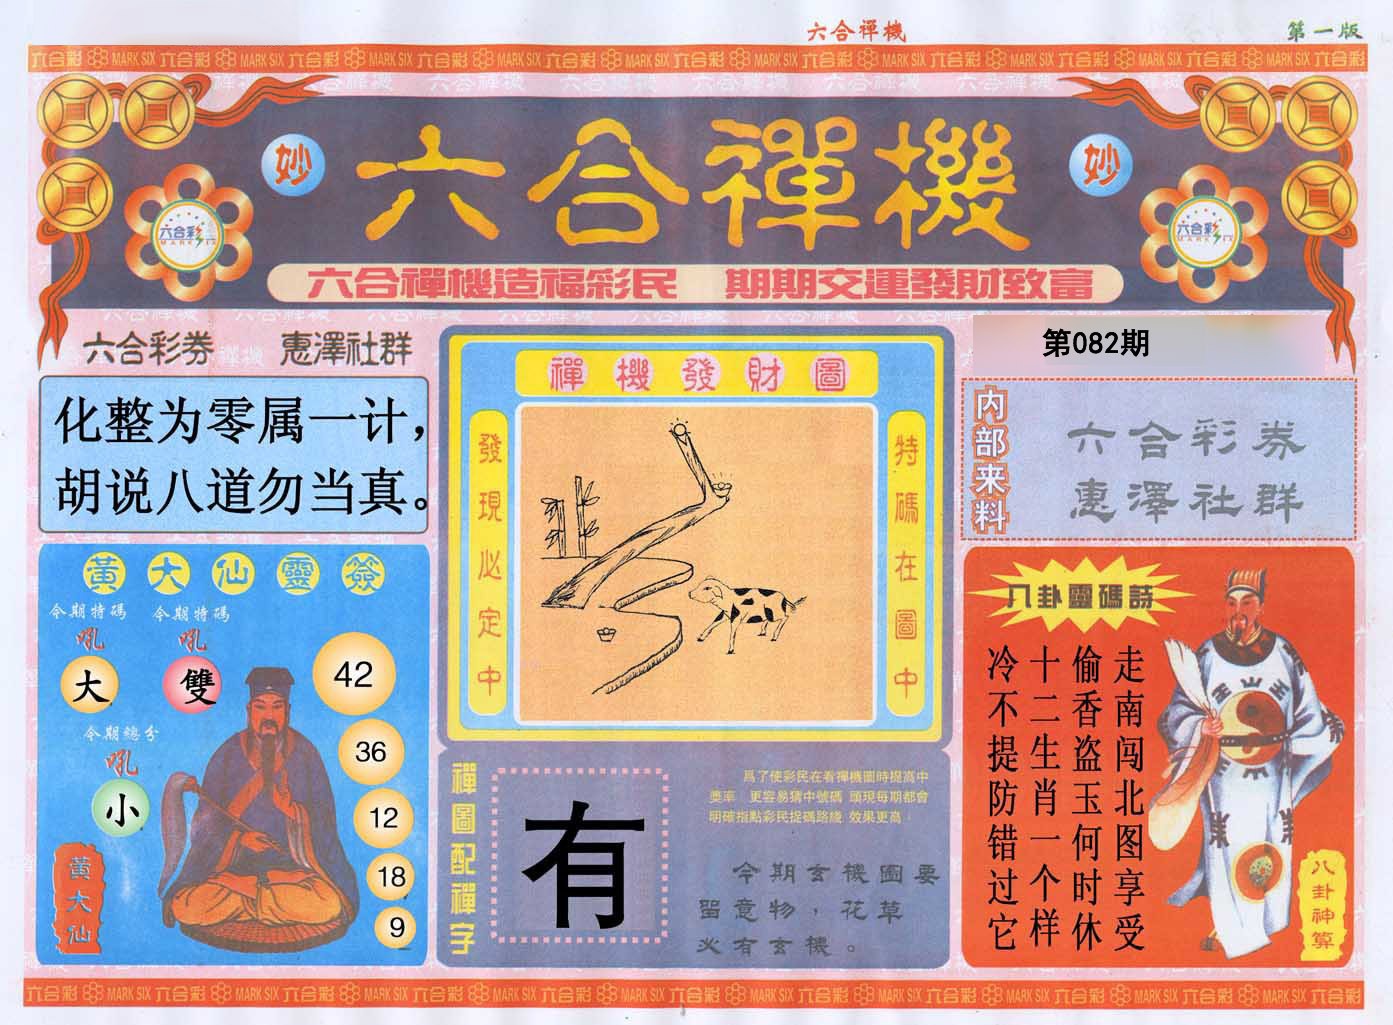 六合禪機
第一版
六合彩 MARK SIX 六合彩 MARK SIX 六合彩 MARK SIX 六合彩 MARK SIX 六合彩 MARK SIX 六合彩 MARK SIX 六合彩 MARK SIX 六合彩 MARK SIX 六合彩 MARK SIX 六合彩 MARK SIX 六合彩
妙
六合禪機
妙
六合彩
MARK SIX
六合彩
MARK SIX
六合禪機造福彩民 期期交運發財致富
六合彩券 惠澤社群
第082期
化整为零属一计，
胡说八道勿当真。
禪機發財圖
發現必定中
特碼在圖中
内部来料
六合彩券
惠澤社群
黃大仙靈簽
今期特碼
吼
大
今期特碼
吼
雙
今期總分
吼
小
42
36
12
18
9
黃大仙
禪圖配禪字
有
爲了使彩民在看禪機圖時提高中
獎率 更容易猜中號碼 頭現每期都會
明確指點彩民捉碼路綫 效果更高
今期玄機圖要
留意物，花草
必有玄機。
八卦靈碼詩
走南闯北图享受
偷香盗玉何时休
十二生肖一个样
冷不提防错过它
八卦神算
六合彩 MARK SIX 六合彩 MARK SIX 六合彩 MARK SIX 六合彩 MARK SIX 六合彩 MARK SIX 六合彩 MARK SIX 六合彩 MARK SIX 六合彩 MARK SIX 六合彩 MARK SIX 六合彩 MARK SIX 六合彩